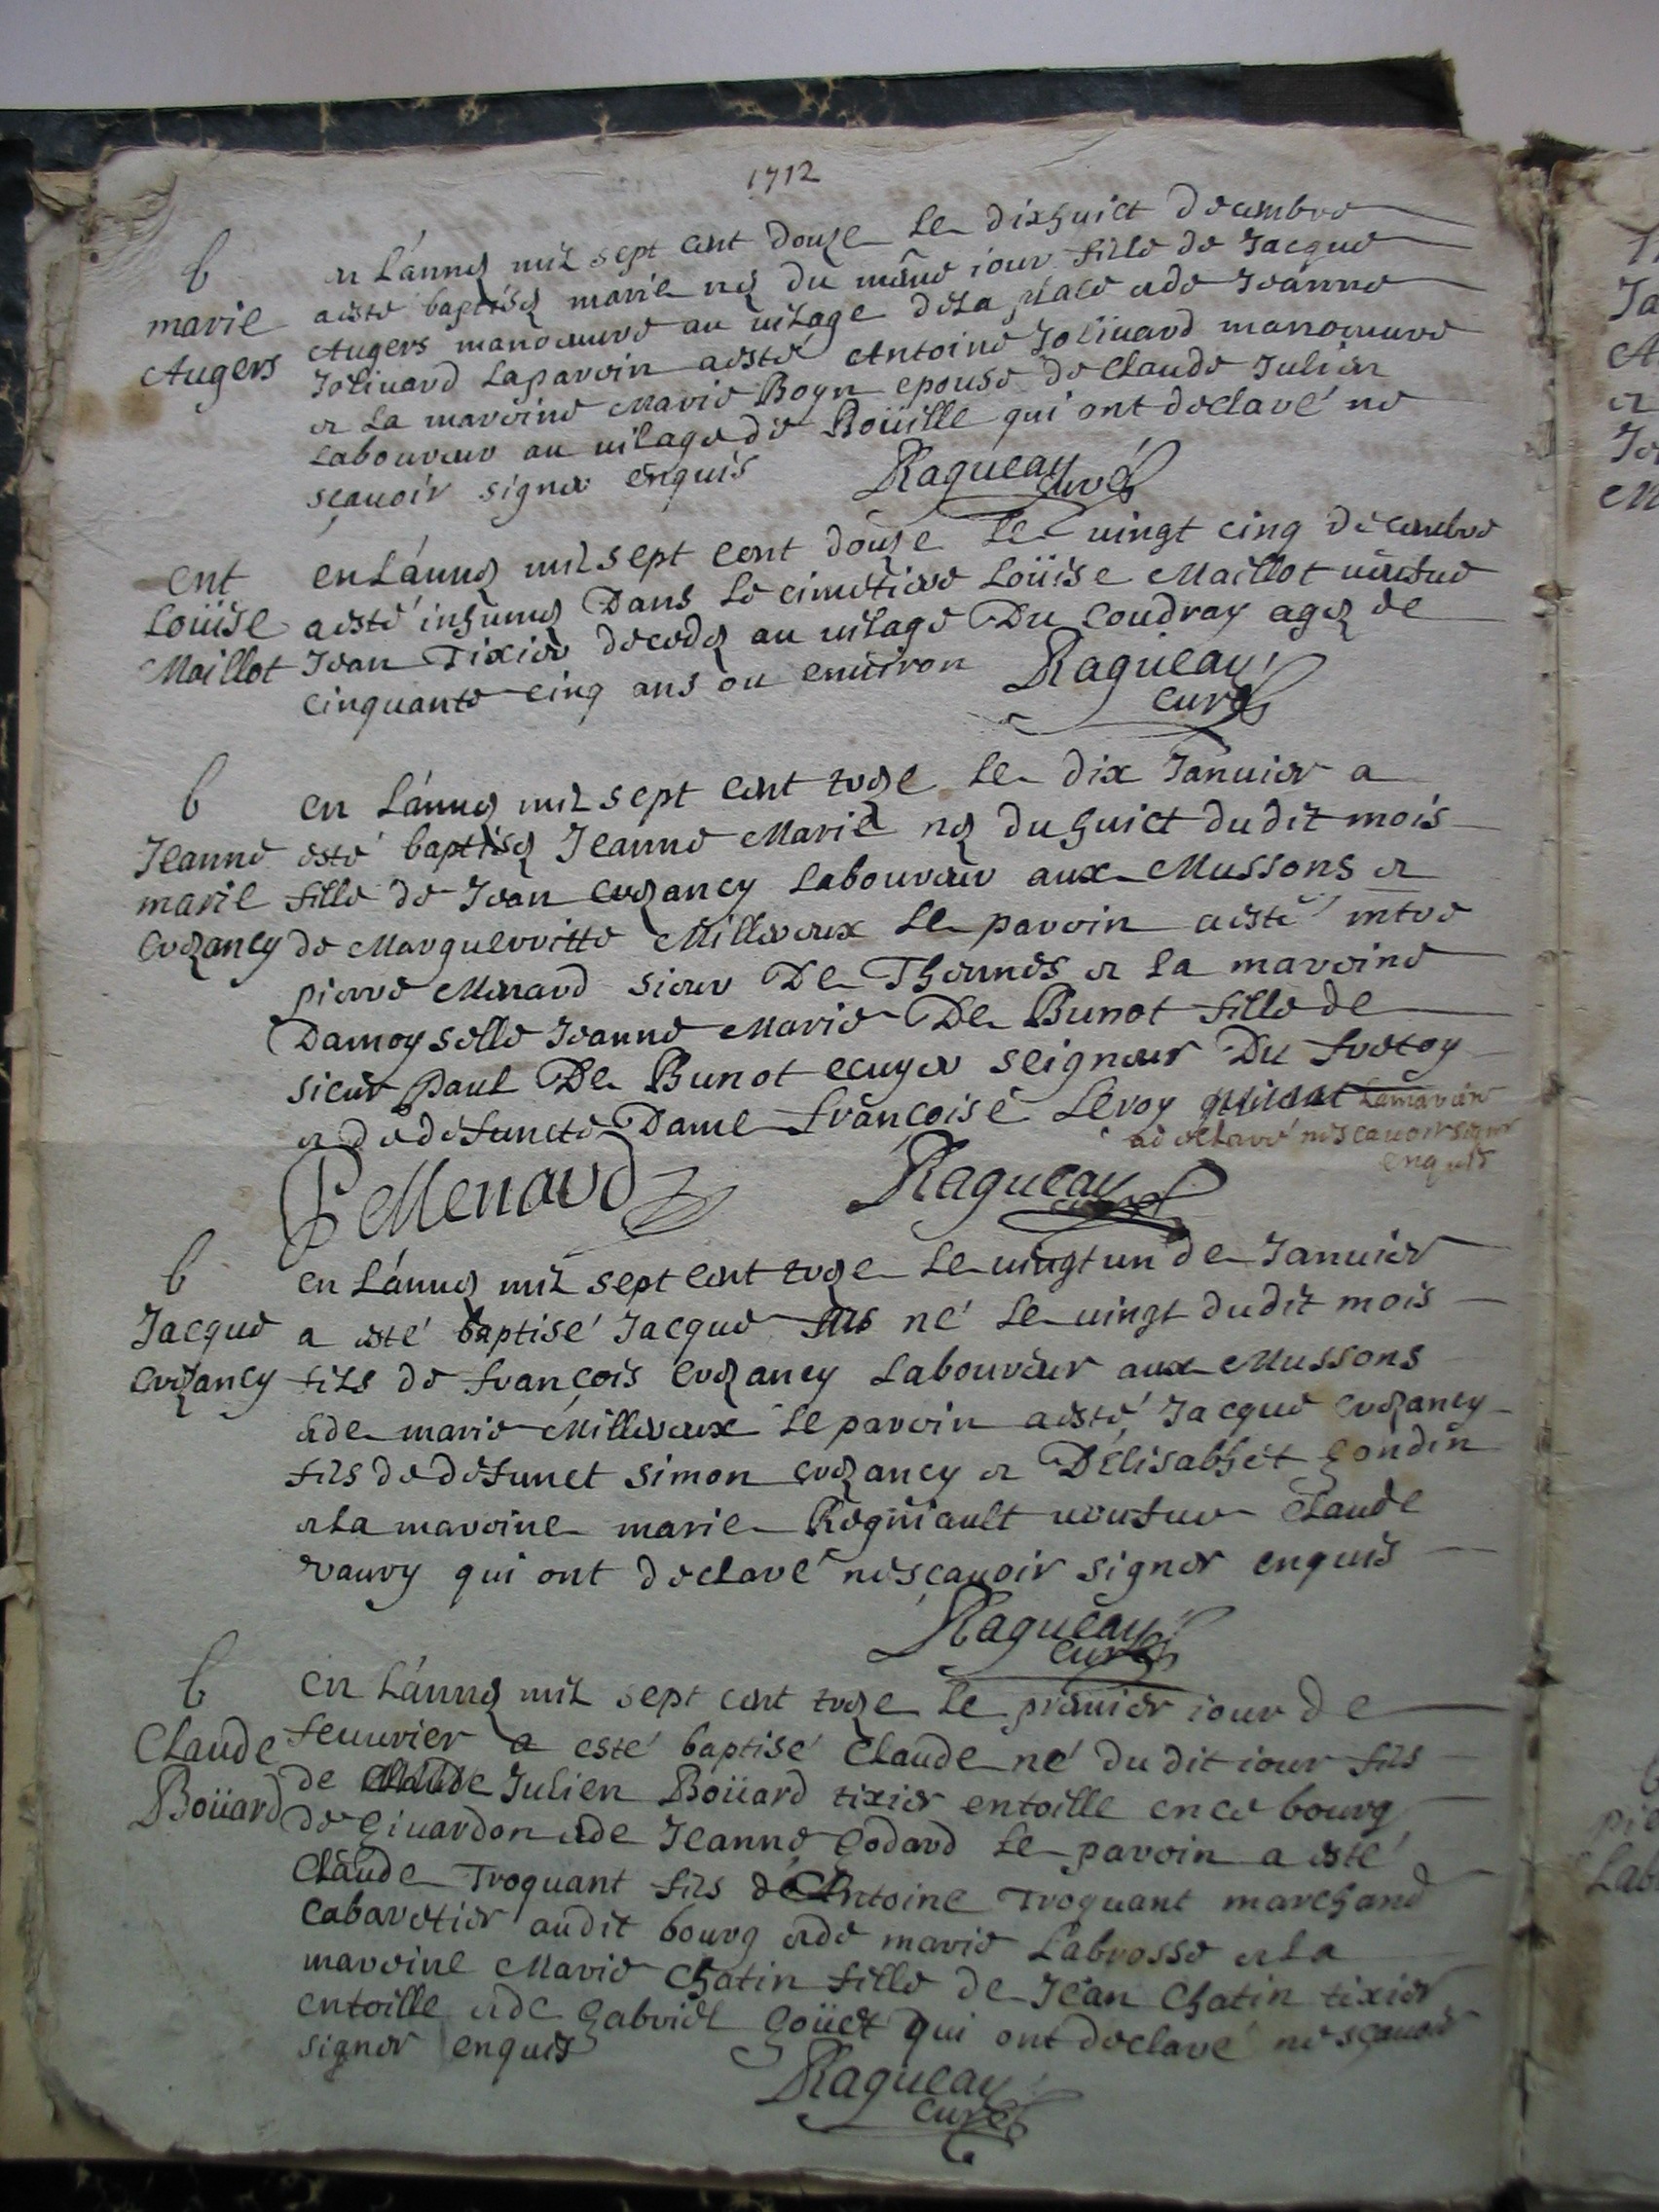 1712
b
marie
Augers
en L'année mil sept cent douze le dixhuict decembre
a esté baptisée marie née du même iour fille de Jacque
Augers manoeuure au uilage de la place et de Jeanne
Joliuard le paroin a esté Antoine Joliuard manoeuure
et la maroine Marie Bogn epouse de Claude Julien
Laboureur au uilage de Roüille qui ont declaré ne
sçauoir signer enquis Ragueau curé
ent
Loüise
Maillot
en L'année mil sept cent douze le uingt cinq decembre
a esté inhumée Dans le cimetiere Loüise Maillot ueufue
Jean Tixier decedée au uilage Du Coudray agée de
cinquante cinq ans ou enuiron Ragueau
curé
b
Jeanne
marie
Crezancy
en L'année mil sept cent treze le dix Januier a
esté baptisée Jeanne Marie née du huict dudit mois
fille de Jean Crezancy Laboureur aux Mussons et
de Marguerritte Milleraux le paroin a esté mtre
pierre Menard sieur De Thermes et la maroine
Damoyselle Jeanne Marie De Bunot fille de
sieur paul De Bunot ecuyer seigneur Du fretoy
et de defuncte Dame françoise Leroy la maroine
a declaré ne scauoir signer
enquis
P Menard Ragueau curé
b
Jacque
Crezancy
en L'année mil sept cent treze le uingt un de Januier
a esté baptisé Jacque fils né le uingt dudit mois
fils de françois Crezancy Laboureur aux Mussons
et de marie Milleraux le paroin a esté Jacque Crezancy
fils de defunct simon Crezancy et D'elisabhet Gondin
et la maroine marie Regniault ueufue Claude
raury qui ont declaré ne scauoir signer enquis
Ragueau
curé
b
Claude
Boüard
en L'année mil sept cent treze le premier iour de
feuurier a esté baptisé Claude né dudit iour fils
de Claude Julien Boüard tixier en toille en ce bourg
de Giuardon et de Jeanne Godard le paroin a esté
Claude Troquant fils d'Antoine Troquant marchand
Cabaretier audit bourg et de marie Labrosse et la
maroine Marie Chatin fille de Jean Chatin tixier
en toille et de Gabriel Goüet qui ont declaré ne sçauoir
signer enquis
Ragueau
curé